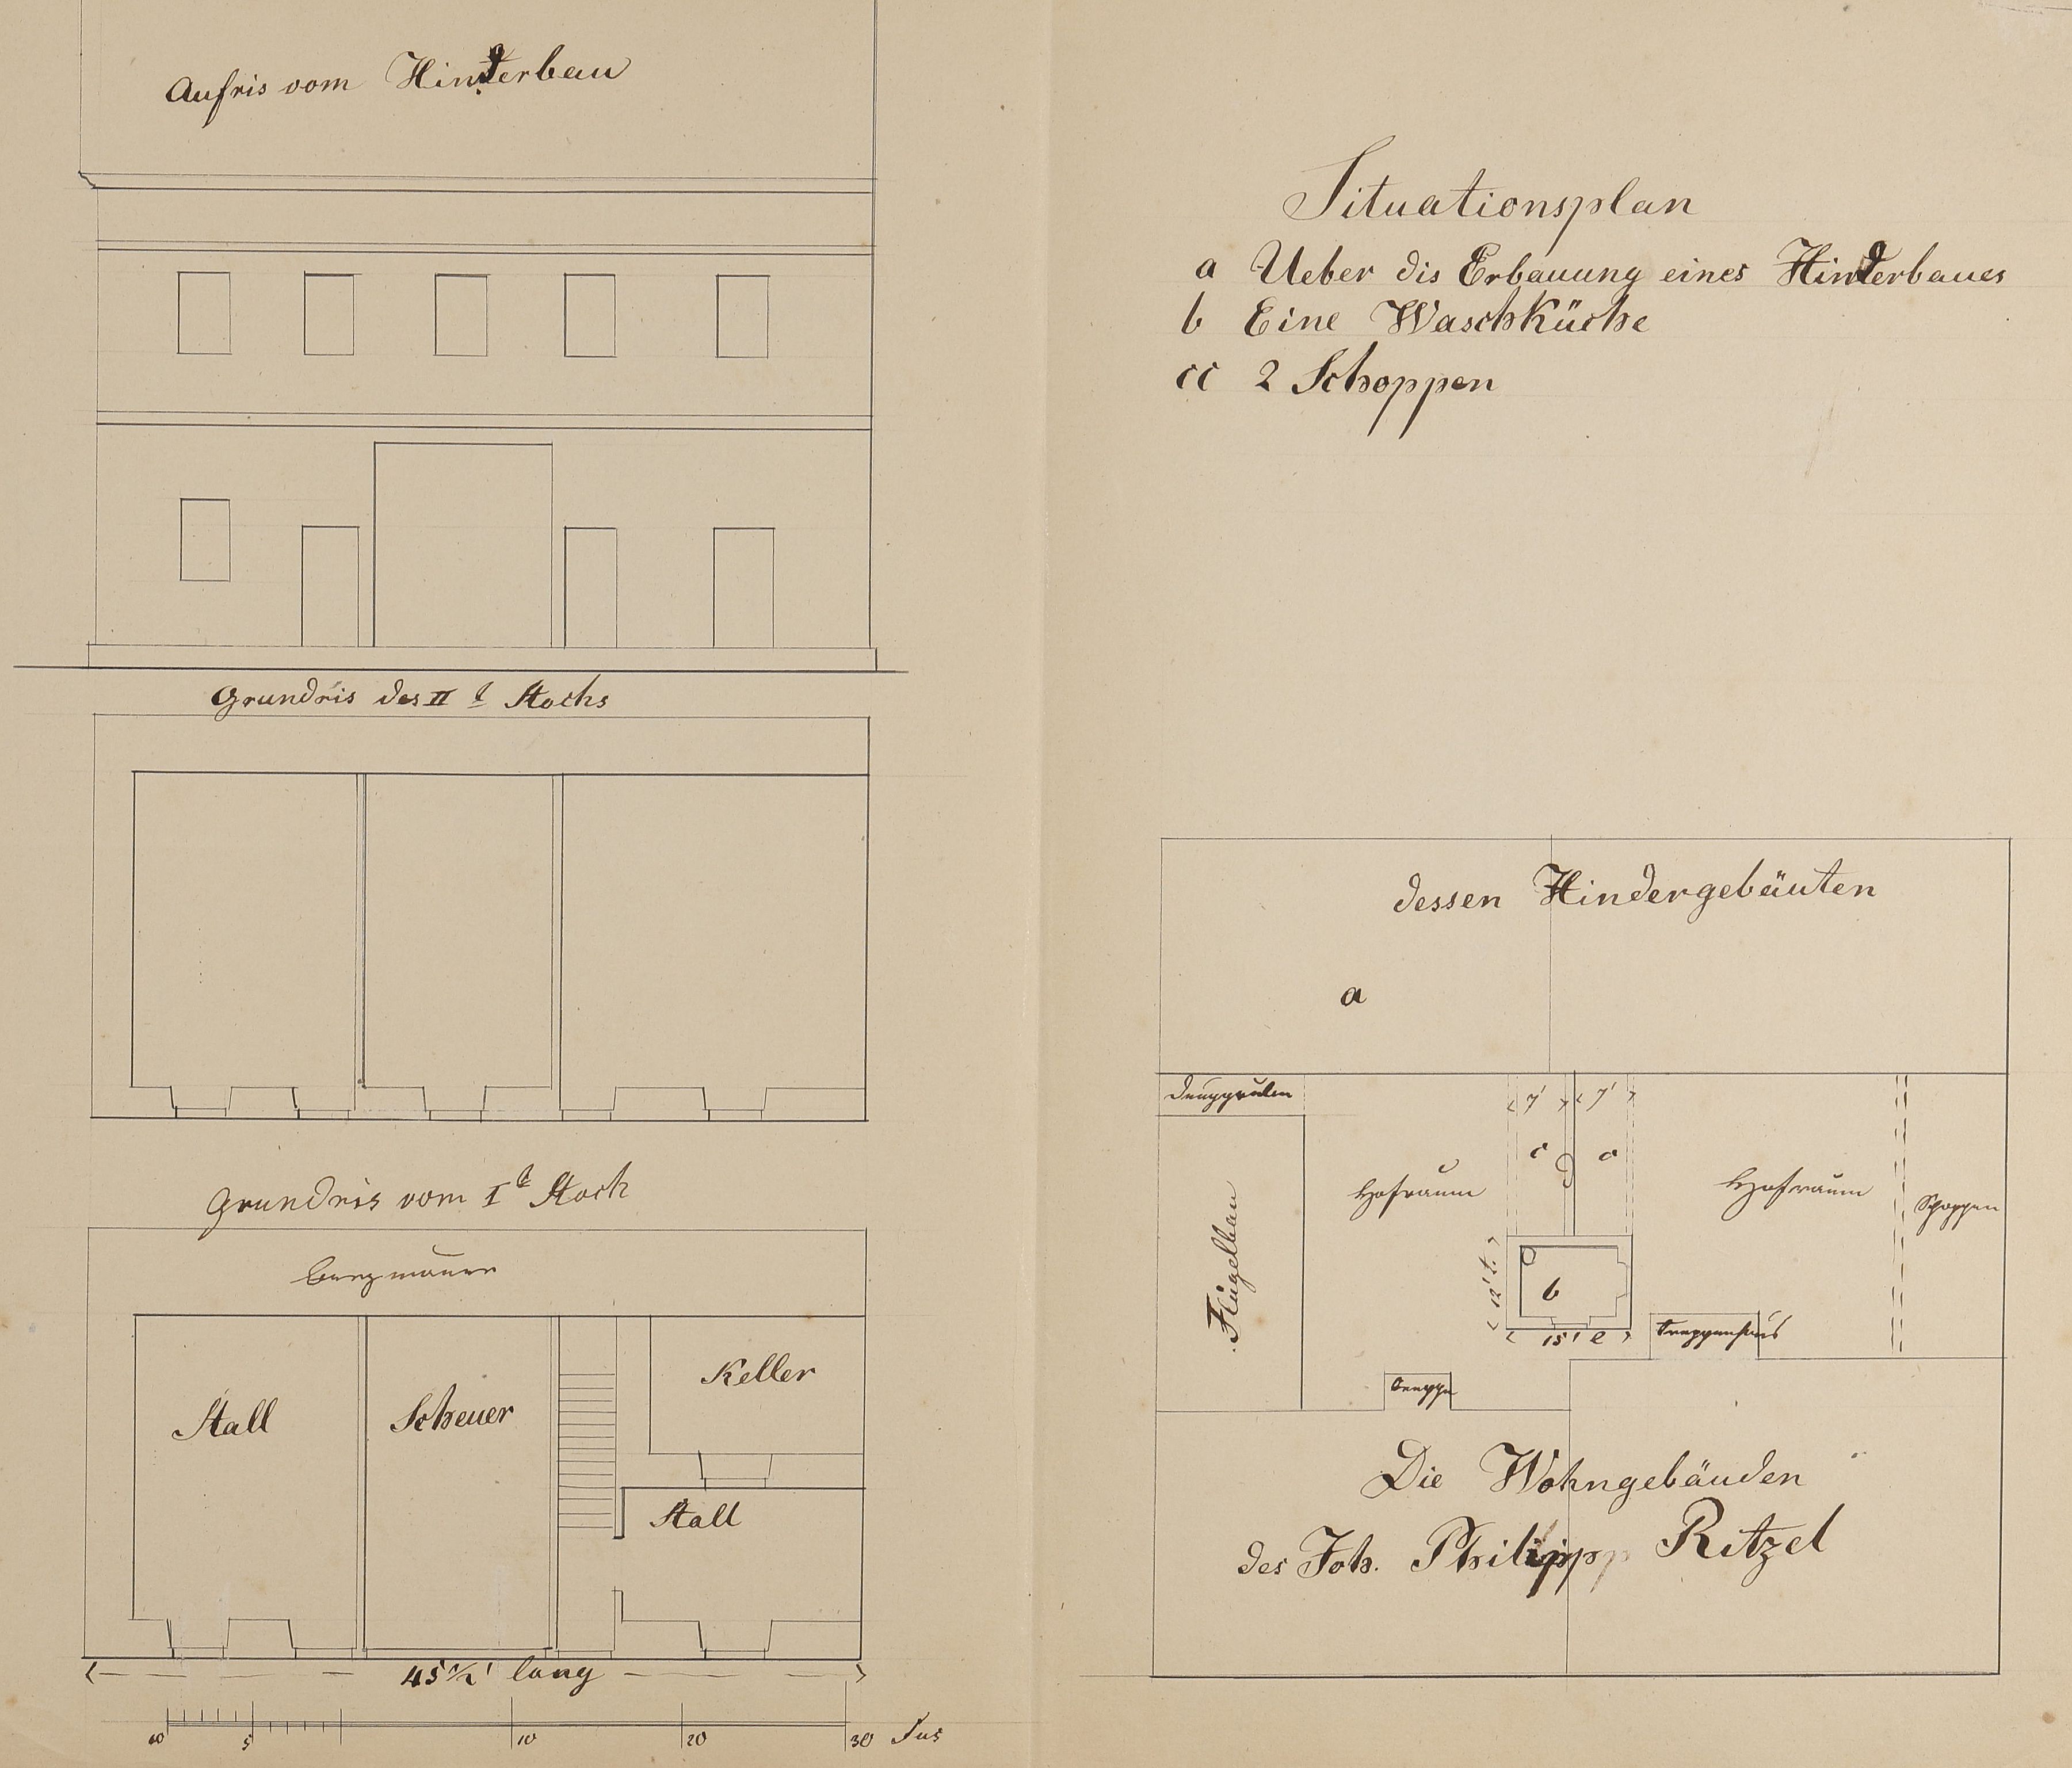 Aufris vom Hinterbau
Grundris des II t Stocks
Grundris vom I t Stock
Bergmauer
Stall
Scheuer
Keller
Stall
45 1/2' lang
10 5 10 20 30 Fus
Situationsplan
a Ueber dis Erbauung eines Hinterbaues
b Eine Waschküche
cc 2 Schoppen
dessen Hindergebäuten
a
Dunggruben
7' 7'
c c
Hofraum
Hofraum
Schoppen
Flügelbau
12' t.
b
15' l
Treppenhaus
Treppe
Die Wohngebäuden
des Joh. Philipp Ritzel